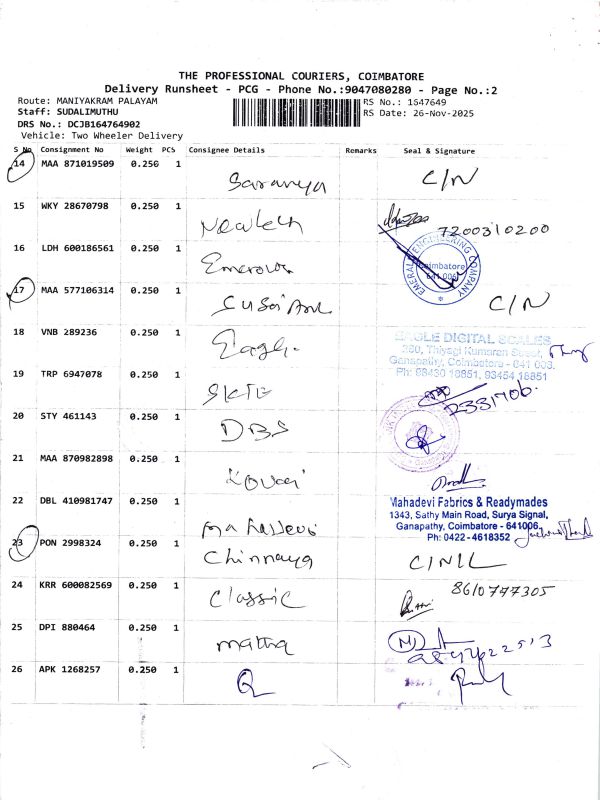 THE PROFESSIONAL COURIERS, COIMBATORE
Delivery Runsheet - PCG - Phone No.:9047080280 - Page No.:2
Route: MANIYAKRAM PALAYAM
RS No.: 1647649
Staff: SUDALIMUTHU
RS Date: 26-Nov-2025
DRS No.: DCJB164764902
Vehicle: Two Wheeler Delivery
S No Consignment No Weight PCS Consignee Details Remarks Seal & Signature
14 MAA 871019509 0.250 1
Saranya C/N
15 WKY 28670798 0.250 1
7200310200
16 LDH 600186561 0.250 1
EMERALD ENGINEERING COMPANY
Coimbatore
641 006
17 MAA 577106314 0.250 1
C/N
18 VNB 289236 0.250 1
Eagle
EAGLE DIGITAL SCALES
280, Thiyagi Kumaran Street,
Ganapathy, Coimbatore - 641 006.
Ph: 98430 18851, 93454 18851
19 TRP 6947078 0.250 1
2331706
20 STY 461143 0.250 1
DBS
21 MAA 870982898 0.250 1
Kovai
22 DBL 410981747 0.250 1
Mahadevi
Mahadevi Fabrics & Readymades
1343, Sathy Main Road, Surya Signal,
Ganapathy, Coimbatore - 641006.
Ph: 0422 - 4618352
23 PON 2998324 0.250 1
Chinnaya
24 KRR 600082569 0.250 1
Classic 8610797305
25 DPI 880464 0.250 1
matha
26 APK 1268257 0.250 1